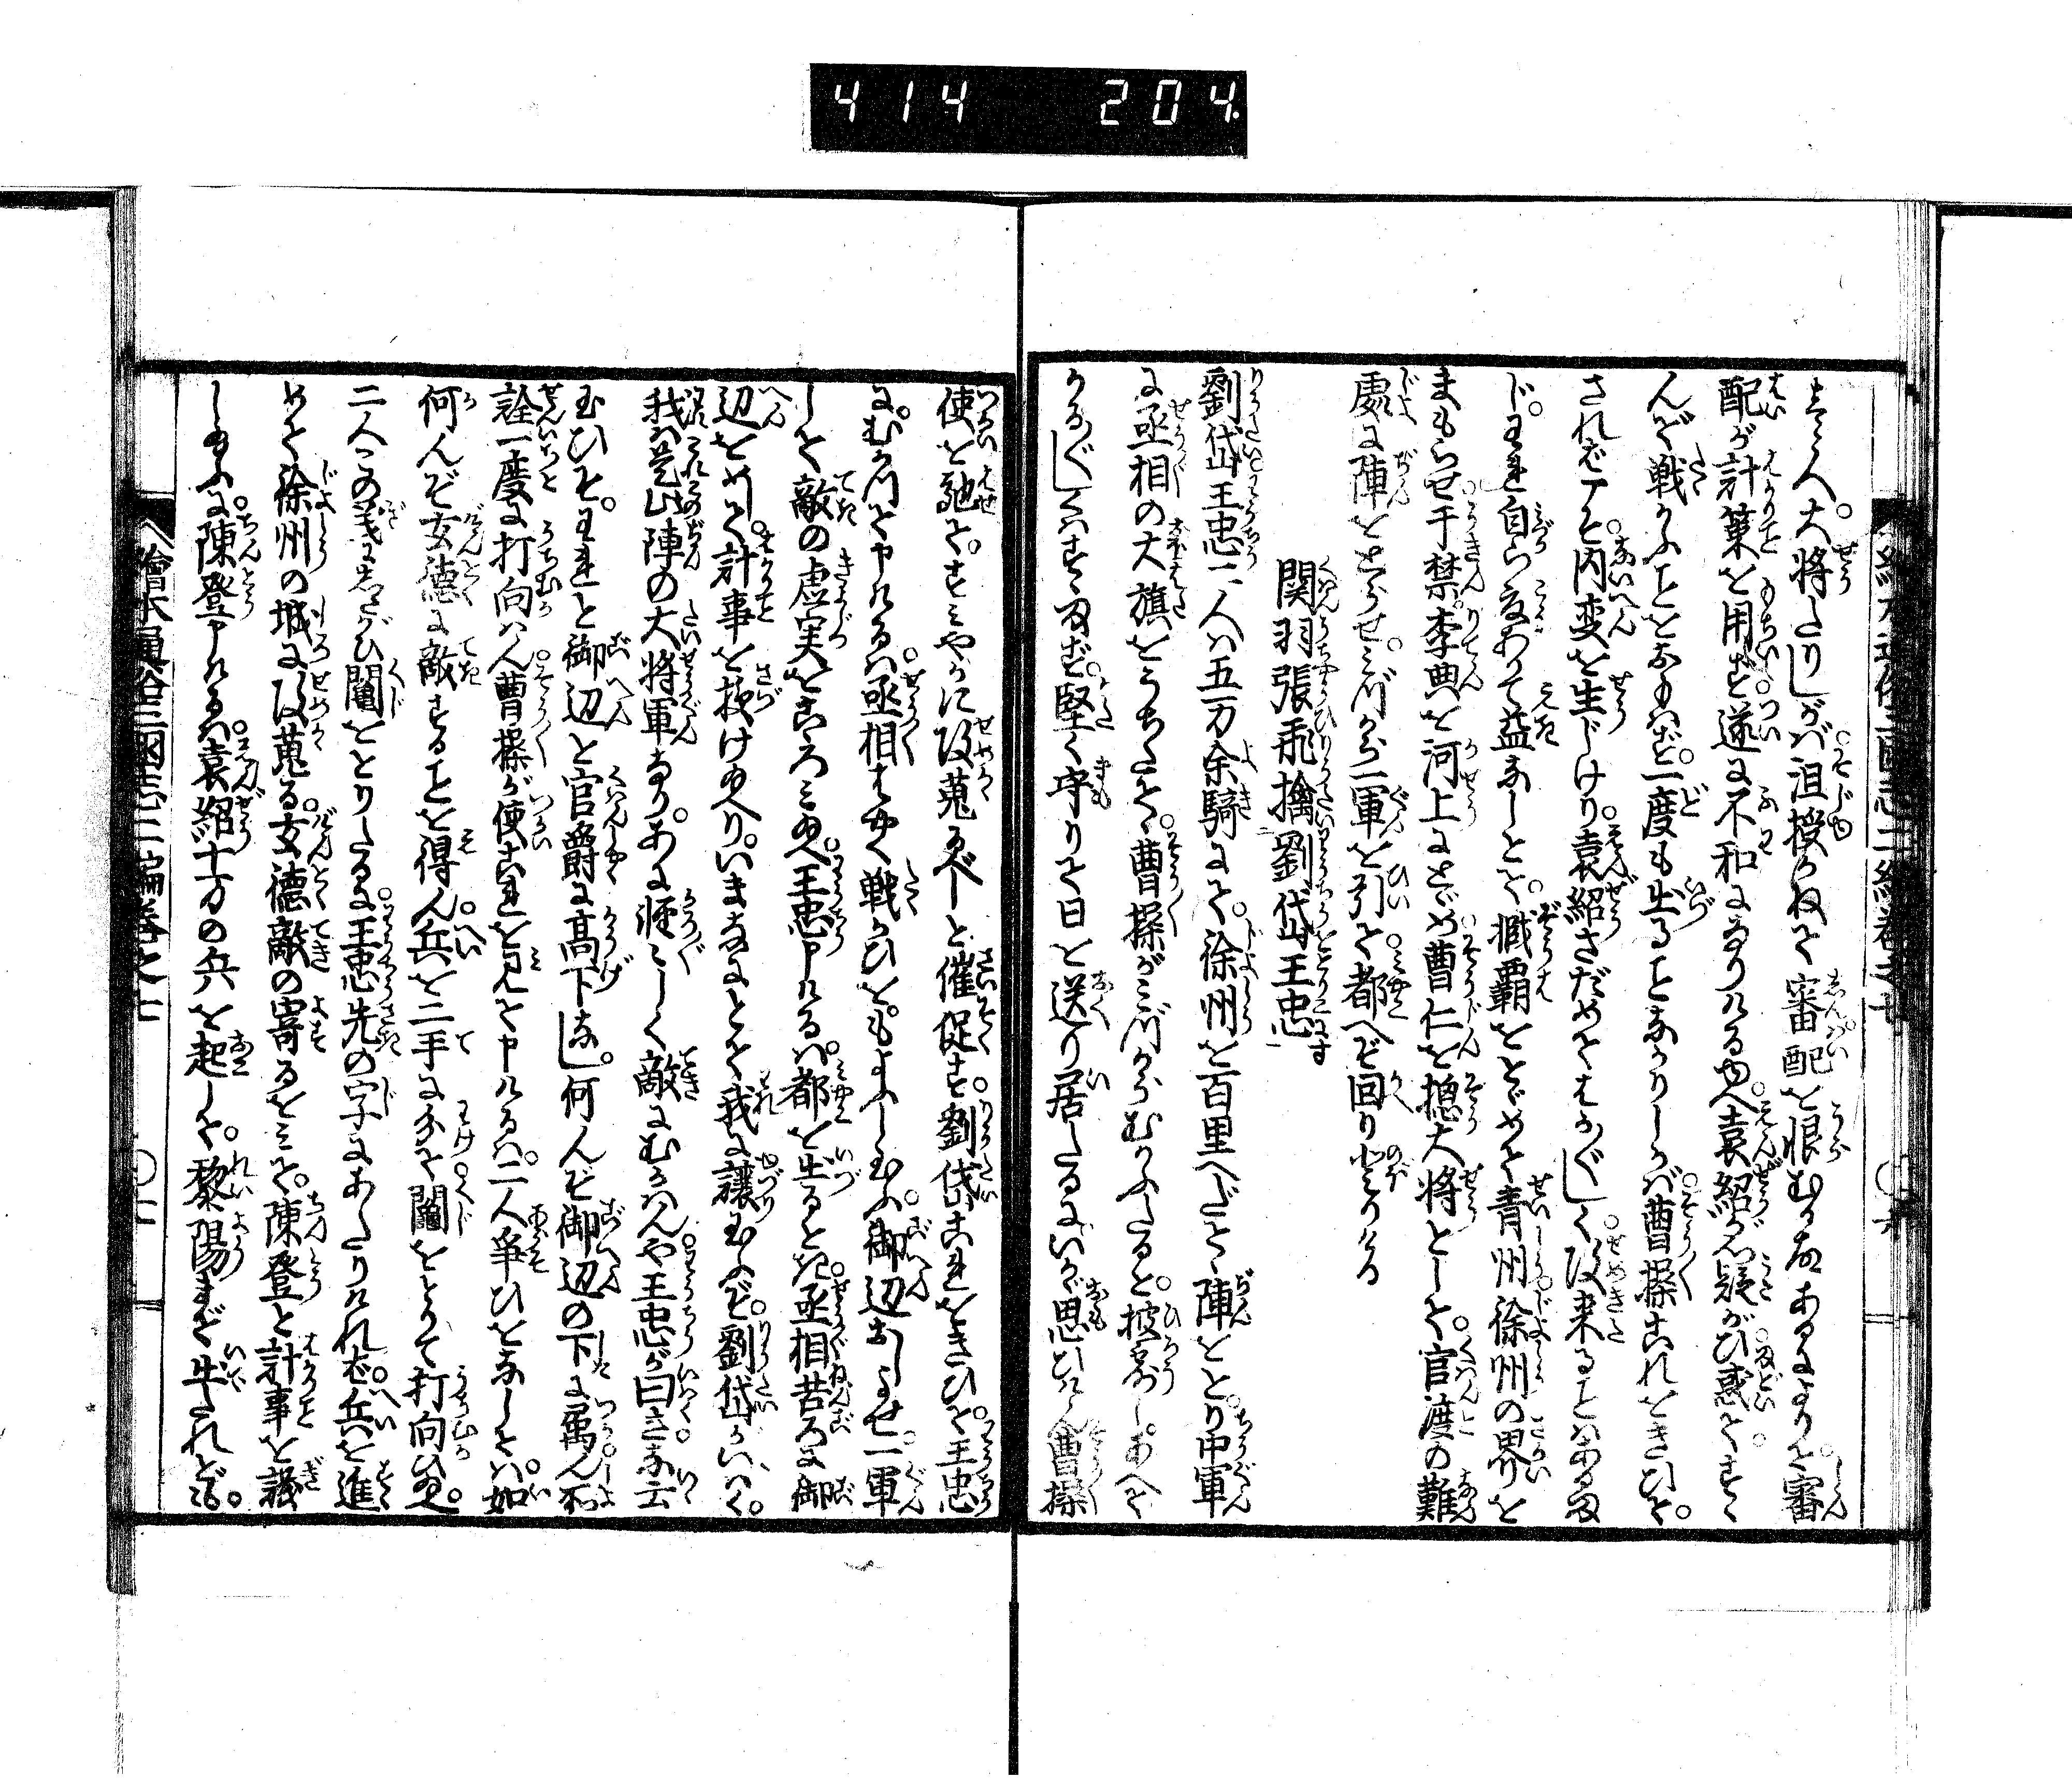 414 204.
大将たりしが沮授かねて審配を恨むる者あるによりて審
配が計策を用ず遂に不和になりける由へ袁紹が心疑がひ惑てすゝ
んで戦かふことをおもはず一度も出ることなかりしかば曹操これをきひて
されば
内変を生じけり袁紹さだめてはかばかしく攻来ることはあるま
じ我自ら爰にありて益なしとて臧覇をとゞめて青州徐州の界を
まもらせ于禁李典を河上にとゞめ曹仁を摠大将として官渡の難
處に陣をとらせみづから一軍を引て都へぞ回りのぼりける
関羽張飛擒劉岱王忠
劉岱王忠二人は五万余騎にて徐州を百里へだてゝ陣をとり中軍
に丞相の大旗をうちたて曹操がみづからむかふたると披露しあへて
かるがるしくはすゝまず堅く守りて日を送り居たるにいかゞ思ひけん曹操
使を馳てすみやかに攻蒐るべしと催促す劉岱これをきひて王忠
にむかつて申けるは丞相はやく戦かひをもよふし玉ふ御辺まづよせ一軍
して敵の虚実をこゝろみ由へ王忠申けるは都を出るとき丞相苦ろに御
辺をめして計事を授け由へりいまなにとて我に譲玉ふぞ劉岱がいはく
我は是此陣の大将軍なりあに軽々しく敵にむかはんや王忠が曰さな云
玉ひそ我と御辺と官爵に高下なし何んぞ御辺の下に属んや不
詮一度に打向はん曹操が使これを見て申けるは二人争ひをなしては如
何んぞ玄徳に敵することを得ん兵を二手に分て鬮をとりて打向ひ由へ
二人この義にしたがひ鬮をとりたるに王忠先の字にあたりければ兵を進
めて徐州の城に攻蒐る玄徳敵の寄るをみて陳登と計事を議
しけるに陳登申けるは袁紹十万の兵を起して黎陽まで出たれども
繪本通俗三國志二編巻之七 〇六
繪本通俗三國志二編巻之七 〇七